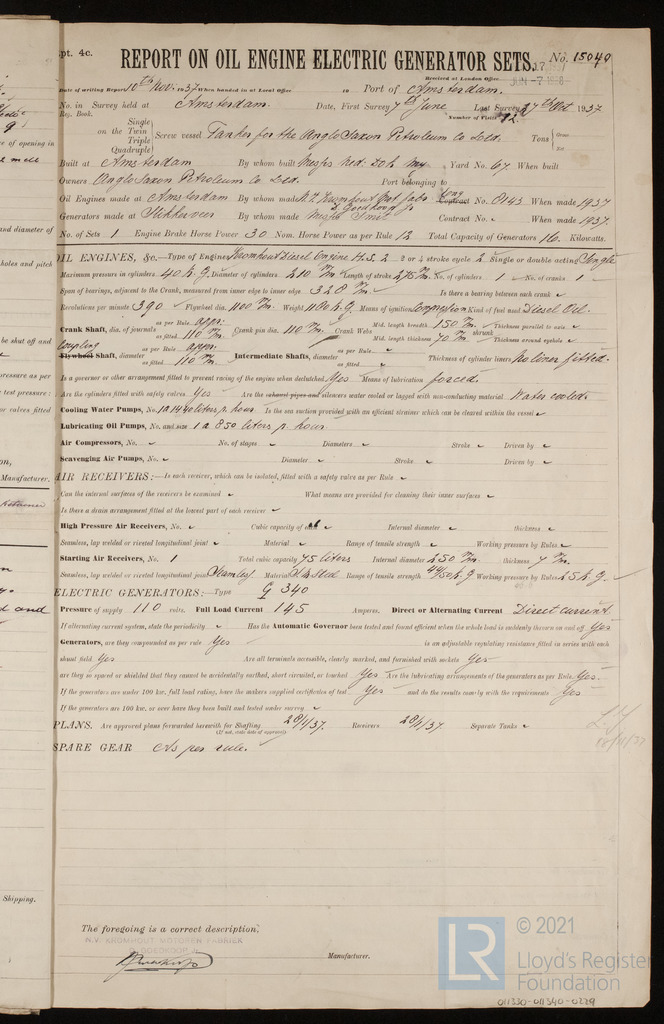 pt. 4c.
REPORT ON OIL ENGINE ELECTRIC GENERATOR SETS. No. 15040
Received at London Office
JUN -7 1938
Date of writing Report 10th Nov. 1937 When handed in at Local Office 10 Port of Amsterdam.
No. in Survey held at Amsterdam. Date, First Survey 7th June Last Survey 27th Oct 1937
Reg. Book. Number of Visits 12.
Single
on the Twin
Triple
Quadruple
Screw vessel Tanker for the Anglo Saxon Petroleum Co Ltd. Tons Gross Net
Built at Amsterdam By whom built Messrs Ned. Dok My Yard No. 67 When built
Owners Anglo Saxon Petroleum Co Ltd. Port belonging to
Oil Engines made at Amsterdam By whom made Kromhout Mot. fabr. D. Goedkoop Jr Contract No. 8143 When made 1937
Generators made at Slikkerveer By whom made Messrs Smit Contract No. When made 1937.
No. of Sets 1 Engine Brake Horse Power 30 Nom. Horse Power as per Rule 12 Total Capacity of Generators 16. Kilowatts.
OIL ENGINES, &c.—Type of Engines Kromhout Diesel Engine H.S. 2 2 or 4 stroke cycle 2 Single or double acting Single
Maximum pressure in cylinders 40 k.g. Diameter of cylinders 210 m/m. Length of stroke 275 m/m. No. of cylinders 1 No. of cranks 1
Span of bearings, adjacent to the Crank, measured from inner edge to inner edge 328 m/m Is there a bearing between each crank ✓
Revolutions per minute 390 Flywheel dia. 1100 m/m. Weight 1180 k.g. Means of ignition Compression Kind of fuel used Diesel Oil.
Crank Shaft, dia. of journals as per Rule appr. as fitted 110 m/m Crank pin dia. 110 m/m. Crank Webs Mid. length breadth 150 m/m Thickness parallel to axis ✓
Mid. length thickness 70 m/m shrunk Thickness around eyehole ✓
Coupling
Flywheel Shaft, diameter as per Rule appr. as fitted 110 m/m. Intermediate Shafts, diameter as per Rule as fitted Thickness of cylinder liners No liner fitted.
Is a governor or other arrangement fitted to prevent racing of the engine when declutched Yes Means of lubrication forced.
Are the cylinders fitted with safety valves Yes Are the exhaust pipes and silencers water cooled or lagged with non-conducting material Water cooled.
Cooling Water Pumps, No. 1 a 1440 liters p. hour Is the sea suction provided with an efficient strainer which can be cleared within the vessel ✓
Lubricating Oil Pumps, No. and size 1 a 850 liters p. hour
Air Compressors, No. ✓ No. of stages ✓ Diameters ✓ Stroke ✓ Driven by ✓
Scavenging Air Pumps, No. ✓ Diameter ✓ Stroke ✓ Driven by ✓
AIR RECEIVERS:—Is each receiver, which can be isolated, fitted with a safety valve as per Rule ✓
Can the internal surfaces of the receivers be examined ✓ What means are provided for cleaning their inner surfaces ✓
Is there a drain arrangement fitted at the lowest part of each receiver ✓
High Pressure Air Receivers, No. ✓ Cubic capacity of each Internal diameter ✓ thickness ✓
Seamless, lap welded or riveted longitudinal joint ✓ Material ✓ Range of tensile strength ✓ Working pressure by Rules ✓
Starting Air Receivers, No. 1 Total cubic capacity 75 liters Internal diameter 250 m/m. thickness 7 m/m.
Seamless, lap welded or riveted longitudinal joint Seamless Material Steel Range of tensile strength 44/50 k.g Working pressure by Rules 25 k.g.
ELECTRIC GENERATORS:—Type G 340
Pressure of supply 110 volts. Full Load Current 145 Amperes. Direct or Alternating Current Direct current.
If alternating current system, state the periodicity ✓ Has the Automatic Governor been tested and found efficient when the whole load is suddenly thrown on and off Yes
Generators, are they compounded as per rule Yes is an adjustable regulating resistance fitted in series with each
shunt field Yes Are all terminals accessible, clearly marked, and furnished with sockets Yes
are they so spaced or shielded that they cannot be accidentally earthed, short circuited, or touched Yes Are the lubricating arrangements of the generators as per Rule Yes.
If the generators are under 100 kw. full load rating, have the makers supplied certificates of test Yes and do the results comply with the requirements Yes
If the generators are 100 kw. or over have they been built and tested under survey ✓
PLANS. Are approved plans forwarded herewith for Shafting 28/1/37. Receivers 28/1/37. Separate Tanks ✓
(If not, state date of approval)
SPARE GEAR As per rule.
The foregoing is a correct description,
N.V. KROMHOUT MOTOREN FABRIEK
D. GOEDKOOP Jr.
Manufacturer.
of opening in
and diameter of
holes and pitch
be shut off and
pressure as per
test pressure:
or valves fitted
Manufacturer.
d and
Shipping.
LR © 2021
Lloyd's Register
Foundation
011330-011340-0229